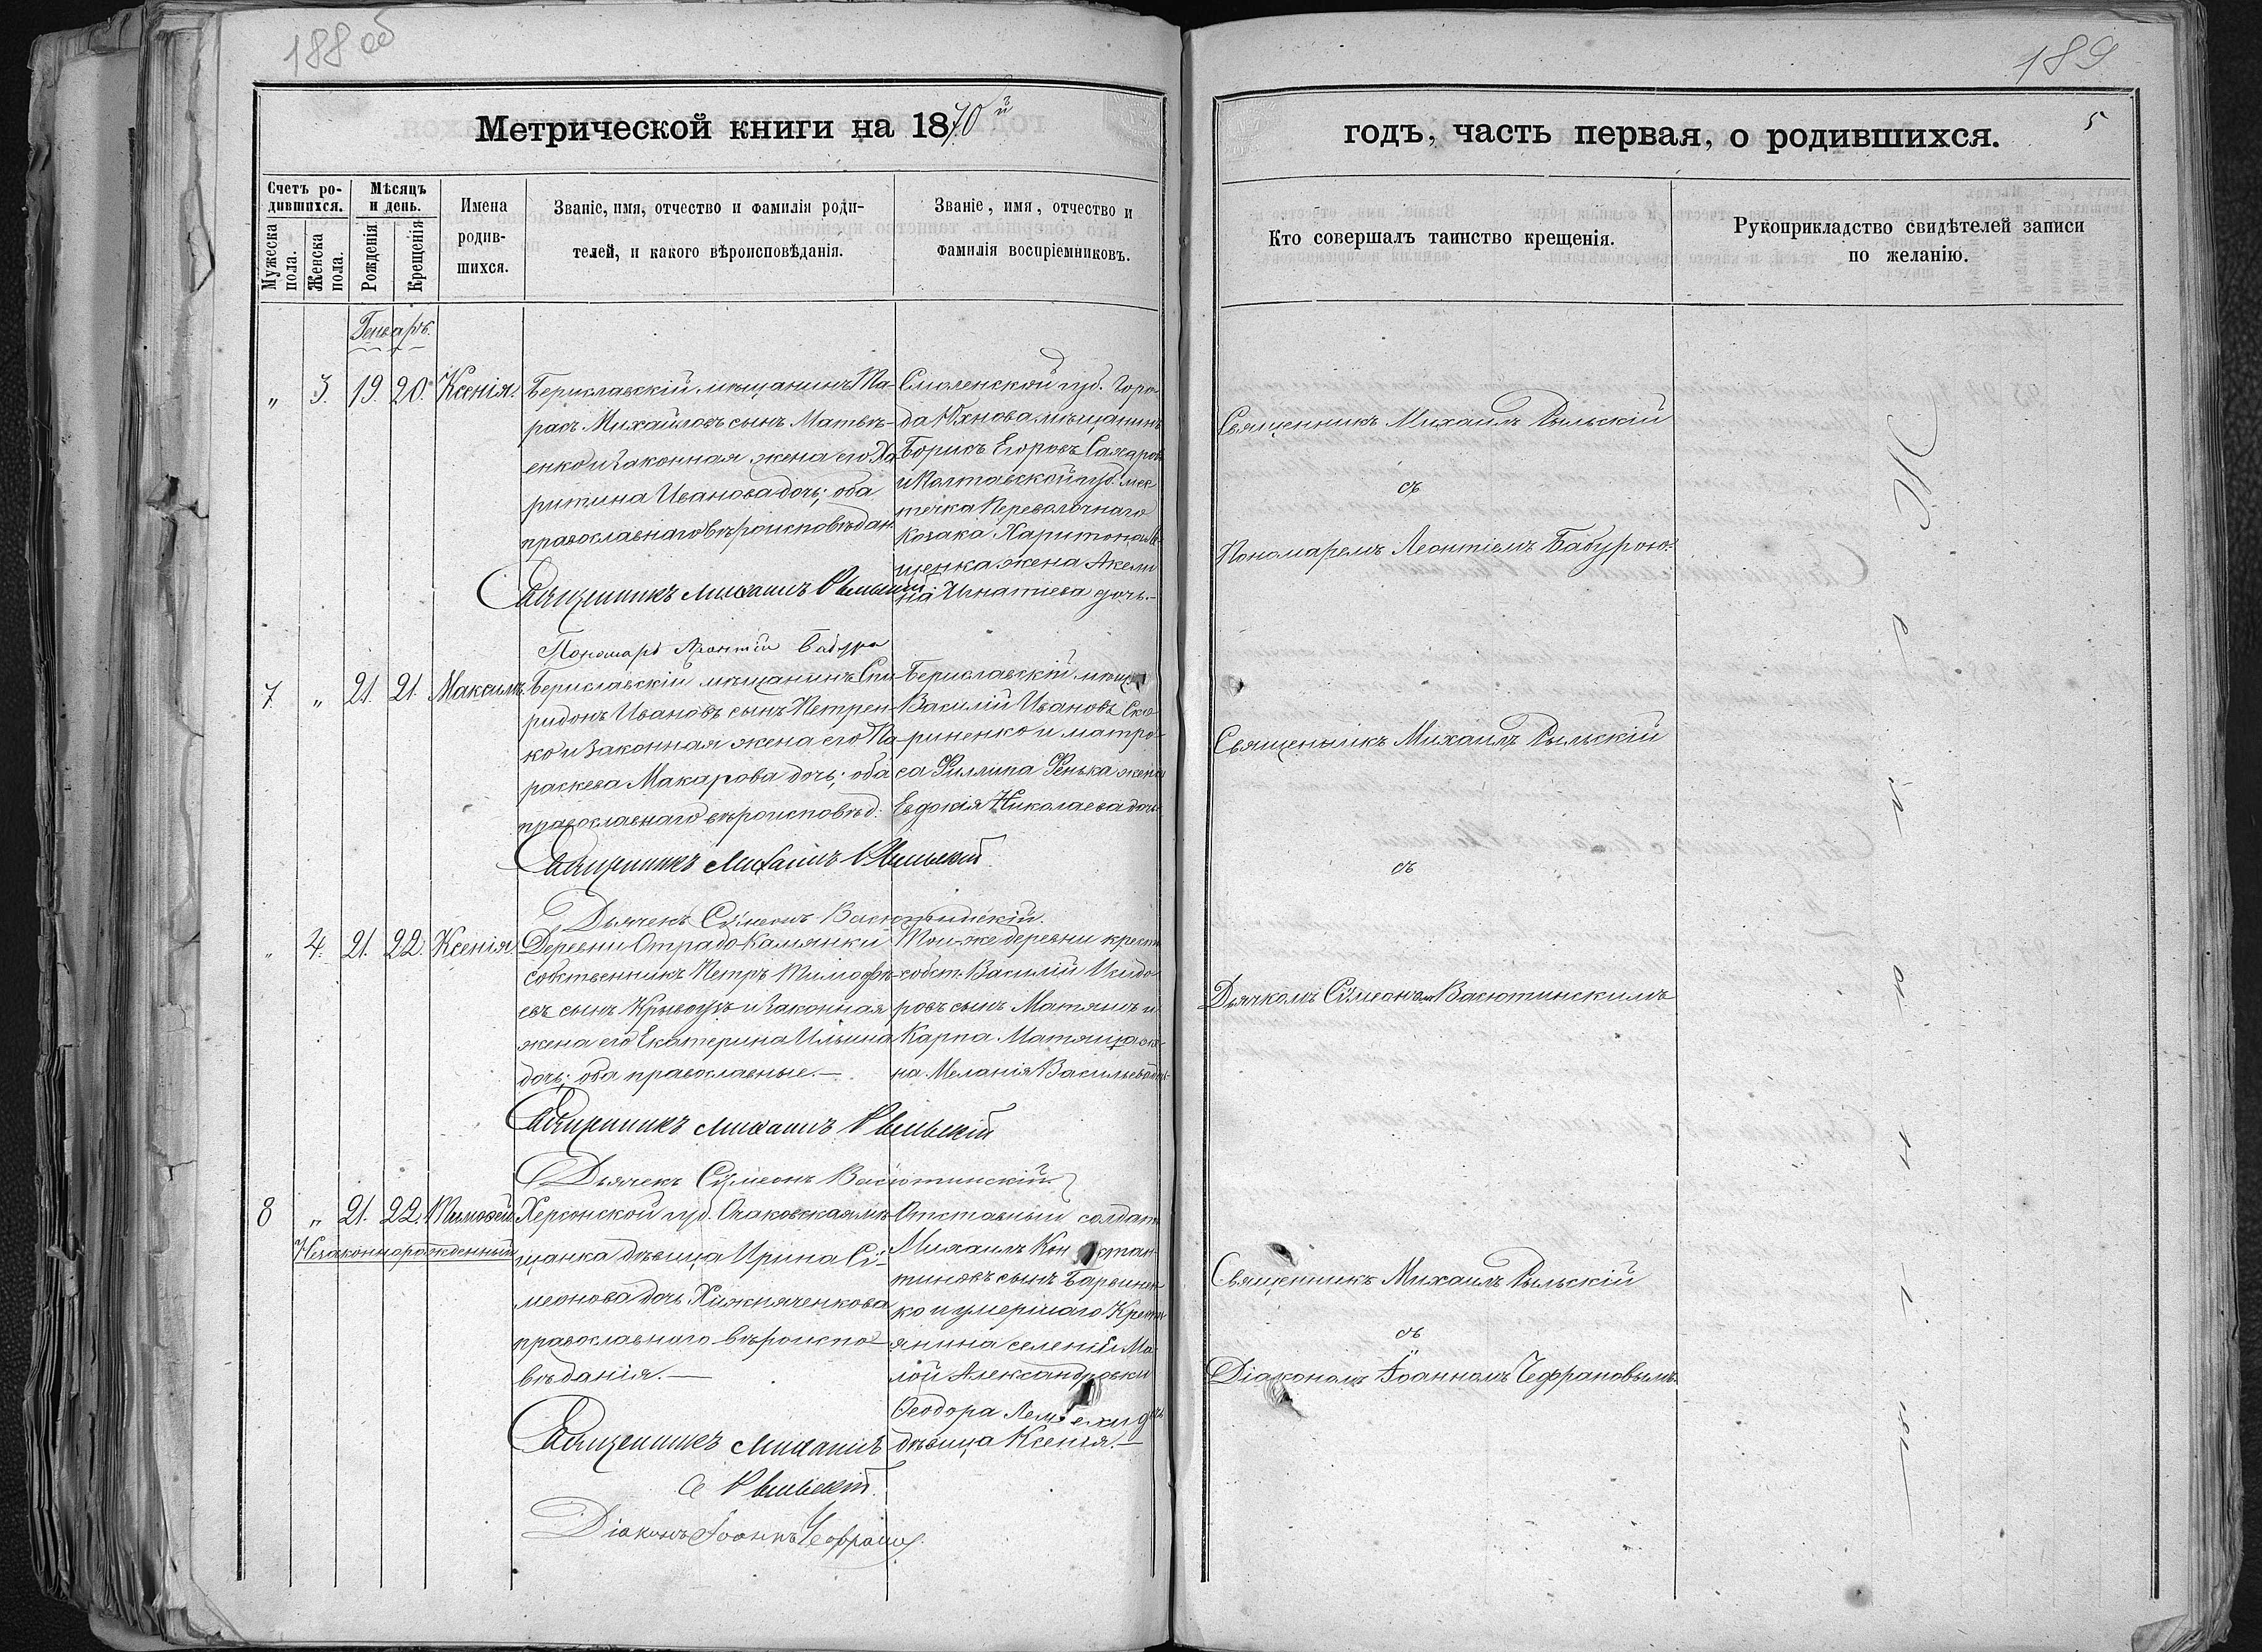 188 об
Метрической книги на 1870й
Счетъ ро-
дившихся.
Мѣсяцъ
и день.
Мужеска
пола.
Женска
пола.
Рожденія.
Крещенія.
Имена
родив-
шихся.
Званіе, имя, отчество и фамилія роди-
телей, и какого вѣроисповѣданія.
Званіе, имя, отчество и
фамилія воспріемниковъ.
Генварь.
„ 3. 19. 20. Ксенія.
Бериславскій мѣщанинъ Та-
расъ Михайловъ сынъ Матвѣ-
енко и законная жена его Ха-
ритина Иванова дочь; оба
православнаго вѣроисповѣдан.
Священникъ Михаилъ Рыльскій
Пономарь Леонтій Бабура
Смоленской губ. Горо-
да Юхнова мѣщанинъ
Борисъ Егоровъ Сахаровъ
и Полтавской губ. мѣс-
течка Переволочнаго
козака Харитона
щенка жена Акели-
на Игнатіева дочь.
7. „ 21. 21. Максимъ.
Бериславскій мѣщанинъ Спи-
ридонъ Ивановъ сынъ Петрен-
ко и законная жена его Па-
раскева Макарова дочь; оба
православнаго вѣроисповѣд.
Священникъ Михаилъ Рыльскій
Дьячекъ Сѵмеонъ Васютинскій.
Бериславскій мѣщ
Василій Ивановъ Ско-
риненко и матро-
са Филлипа Фенька жена
Евдокія Николаева дочь
„ 4. 21. 22. Ксенія.
Деревни Отрадо-Камянки
собственникъ Петръ Тимофѣ-
евъ сынъ и законная
жена его Екатерина Ильина
дочь; оба православные.—
Священникъ Михаилъ Рыльскій
Дьячекъ Сѵмеонъ Васютинскій
Той-же деревни крест
собст. Василій Исидо-
ровъ сынъ Матяшъ и
Карпа Матяша же-
на Меланія Васильева дочь
8 „ 21. 22. Тимоѳей
Незаконнорожденный
Херсонской губ. Очаковская мѣ-
щанка дѣвица Ирина Сѵ-
меонова дочь Хижняченкова
православнаго вѣроиспо-
вѣданія.—
Священникъ Михаилъ
Рыльскій.
Діаконъ Іоаннъ Чефрановъ
Отставный солдатъ
Михаилъ Констан-
тиновъ сынъ Барвинен-
ко и умершаго Крест-
янина селенія Ма-
лой Александровки
Ѳеодора дочь
дѣвица Ксенія.—
189
годъ, часть первая, о родившихся.
5
Кто совершалъ таинство крещенія.
Рукоприкладство свидѣтелей записи
по желанію.
Священникъ Михаилъ Рыльскій
съ
Пономаремъ Леонтіемъ Бабурою.
Священникъ Михаилъ Рыльскій
съ
Дьячкомъ Сѵмеономъ Васютинскимъ
Священникъ Михаилъ Рыльскій
съ
Діакономъ Іоанномъ Чефрановымъ.